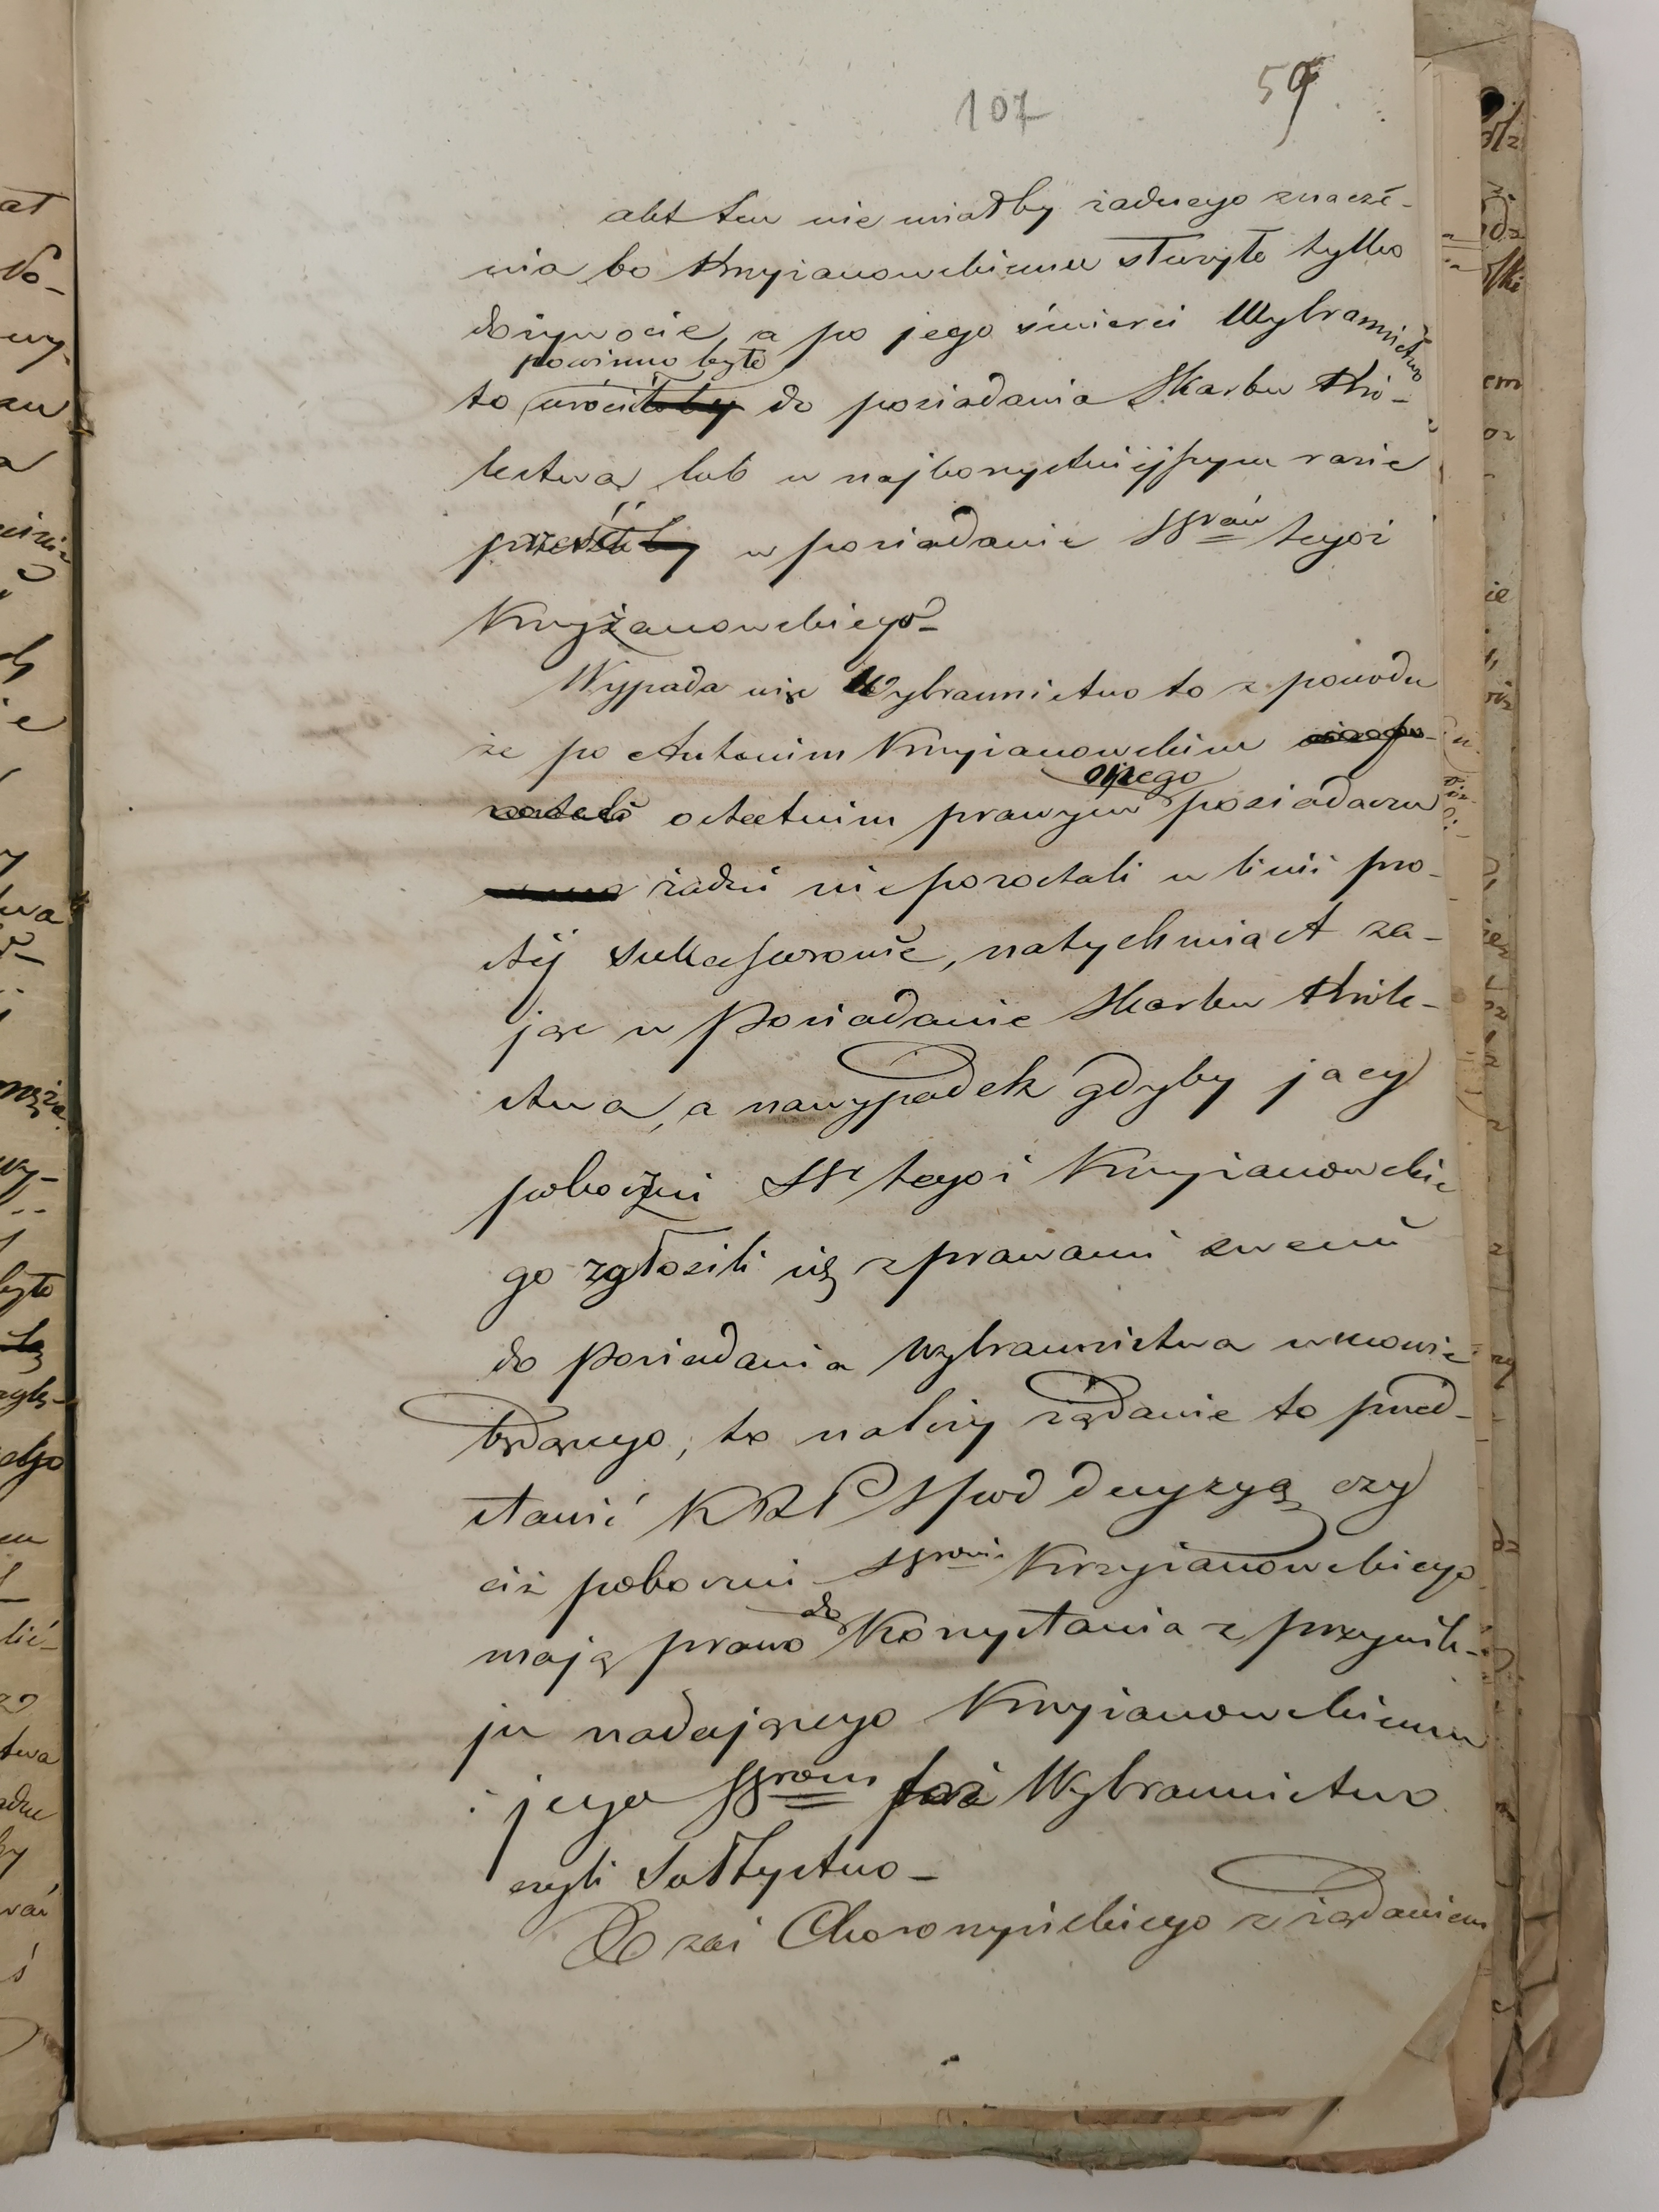 107
59
akt ten nie miałby żadnego znacze-
nia bo Krzyżanowskiemu służyło tylko
dożywocie, a po jego śmierci Wybranictwo
powinno było
to wrócić do posiadania Skarbu Kró-
lestwa, lub w najkorzystniejszym razie
przejść w posiadanie SSrów tegoż
Krzyżanowskiego –
Wypada więc Wybrannictwo to z powodu
że po Antonim Krzyżanowskim
onego
ostatnim prawym posiadaczu
żadni niepozostali w linii pro-
stéj sukcessorowie, natychmiast za-
jąć w Posiadanie Skarbu Króle-
stwa, a nawypadek gdyby jacy
poboczni SSr tegoż Krzyżanowskie
go zgłosili się z prawami swemi
do Posiadania Wybrannictwa wmowie
będącego, to należy żądanie to przed-
stawić KRPS pod decyzyą czy
ciż poboczni SSrowie Krzyżanowskiego
do
mają prawo Korzystania z przywile-
ju nadającego Krzyżanowskiemu
i jego SSrom Wybrannictwo
czyli Sołtystwo –
Co zaś Choromyńskiego z żądaniem